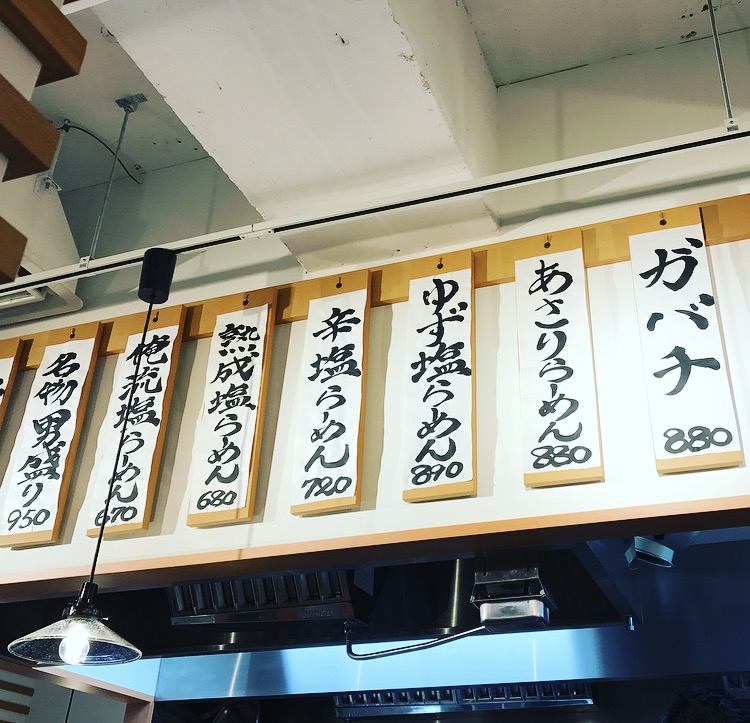 ガバチ
880
あさりらーめん
880
ゆず塩らーめん
890
辛塩らーめん
780
熟成塩らーめん
680
俺流塩らーめん
670
名物男盛り
950